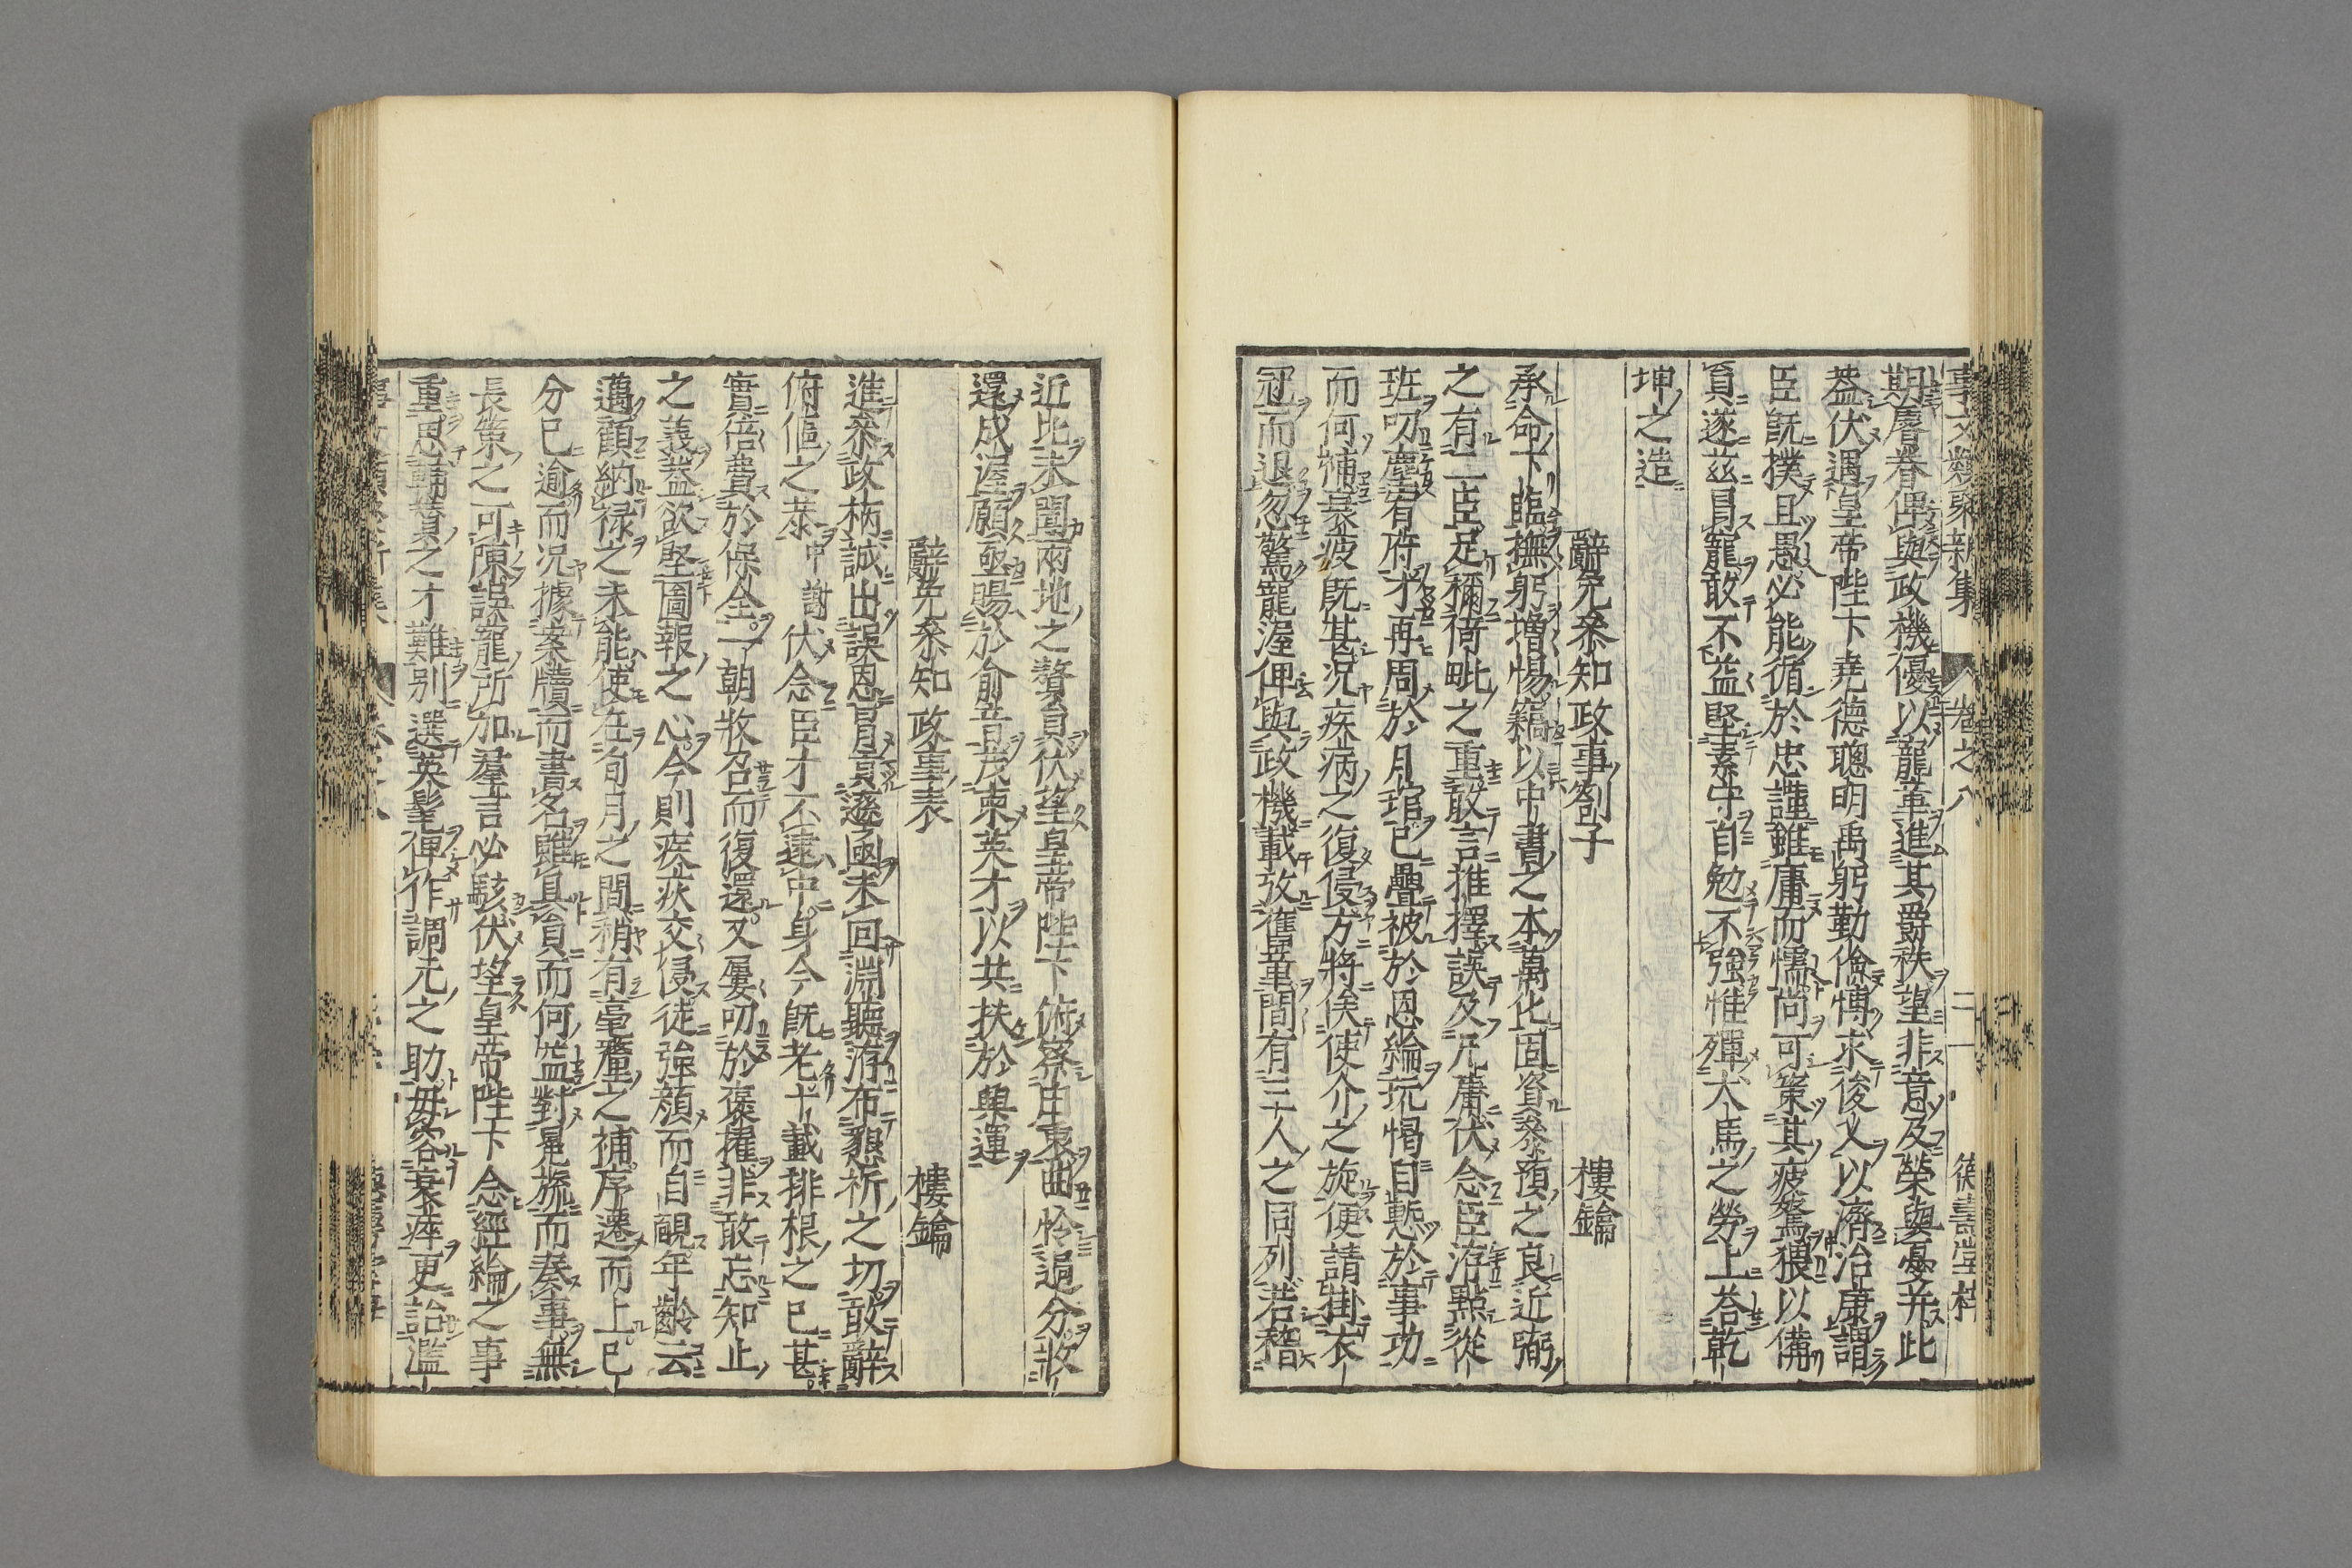 事文類聚新集 卷之八 二 德壽堂梓
期膺眷俾與政機優以龍革進其爵秩望非意及榮與憂并此
蓋伏遇皇帝陛下堯德聰明禹躬勤儉博求俊乂以濟治康謂
臣既撲且愚必能循於忠謹雖庸而懦尚可策其疲駑猥以備
員遂茲冒寵敢不益堅素守自勉不強惟殫犬馬之勞上荅乾
坤之造
辭免叅知政事劄子 樓鑰
承命下臨撫躬増惕竊以中書之本萬化固資叅預之良近弼
之有二臣足稱倚毗之重敢言推擇誤及凡庸伏念臣洊點從
班叨塵宥府才再周於月琯已疊被於恩綸玩愒自慙於事功
而何補衰疲既甚况疾病之復侵方將俟使介之旋便請掛衣
冠而退忽驚寵渥俾與政機載攷舊章間有三人之同列若稽
近比未聞兩地之贅員伏望皇帝陛下俯察由衷曲怜過分收
還成渥願亟賜於俞音茂柬英才以共扶於興運
辭免叅知政事表 樓鑰
進叅政柄誠出誤恩冒貢遜函未回淵聽洊布懇祈之切敢辭
俯傴之恭中謝伏念臣才不逮中身今既老十載排根之已甚
實倍費於保全一朝收召而復還又屢叨於褒擢非敢忘知止
之義蓋欲堅圖報之心今則疾疢交侵徒強顔而自覼年齡云
邁顧納禄之未能使在旬月之間稍有毫釐之補序遷而上已
分已逾而况據案牘而書名雖具貟而何益對冕旒而奏事無
長策之可陳誤寵所加羣言必駭伏望皇帝陛下念經綸之事
重思輔贊之才難別選英髦俾作調元之助毋容衰瘁更詒濫